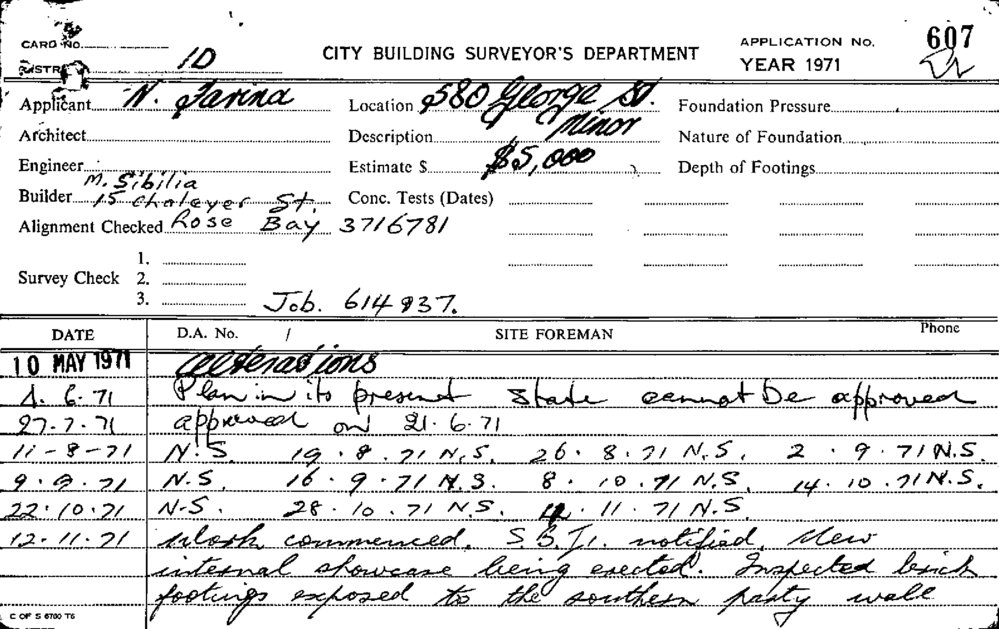 CARD No. CITY BUILDING SURVEYOR'S DEPARTMENT APPLICATION No. 607
DISTR 1D YEAR 1971
Applicant N. Farina Location 580 George St. Foundation Pressure
Architect Description Minor Nature of Foundation
Engineer Estimate $ $5,000 Depth of Footings
M. Sibilia
Builder 15 Chaleyer St. Conc. Tests (Dates)
Alignment Checked Rose Bay 3716781
1.
Survey Check 2.
3. Job. 614937.
DATE D.A. No. / SITE FOREMAN Phone
10 MAY 1971 Alterations
4. 6. 71 Plan in its present state cannot be approved
27-7-71 approved on 21.6.71
11-8-71 N.S. 19.8.71 N.S. 26.8.71 N.S. 2.9.71 N.S.
9.9.71 N.S. 16.9.71 N.S. 8.10.71 N.S. 14.10.71 N.S.
22.10.71 N.S. 28.10.71 N.S. 11.71 N.S.
12.11.71 Work commenced. notified. New
internal showcase being erected. Inspected brick
footings exposed to the southern party wall
C OF S 6700 T6